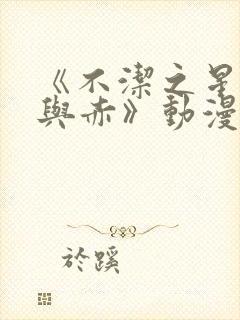 《不潔之星
與赤》動漫
於蹊